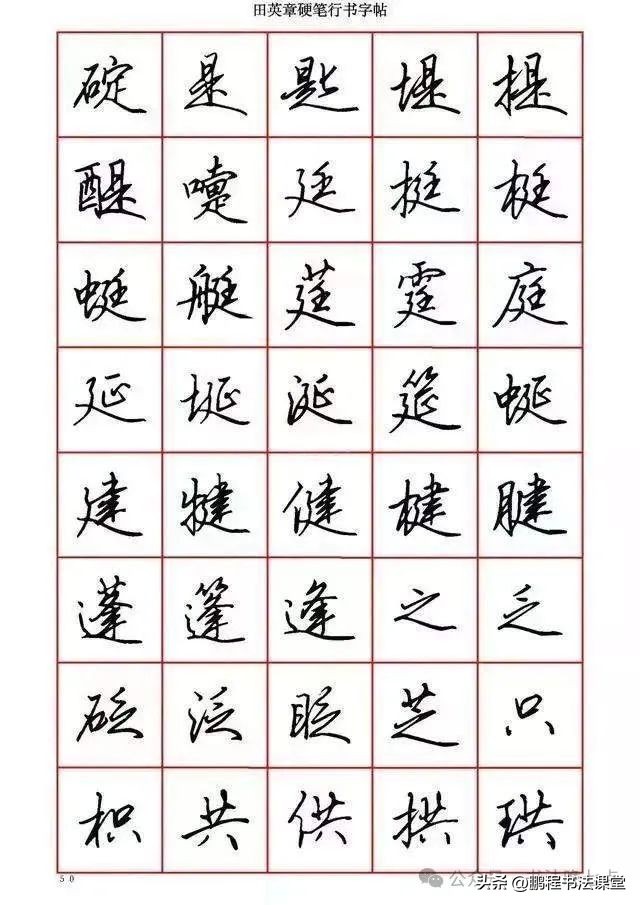 田英章硬笔行书字帖
碇 是 匙 堤 提
醍 嚏 廷 挺 梃
蜓 艇 莛 霆 庭
延 埏 涎 筵 蜒
建 犍 健 楗 腱
蓬 篷 逢 之 乏
砭 泛 眨 芝 只
枳 共 供 拱 珙
50
头条 @鹏程书法课堂